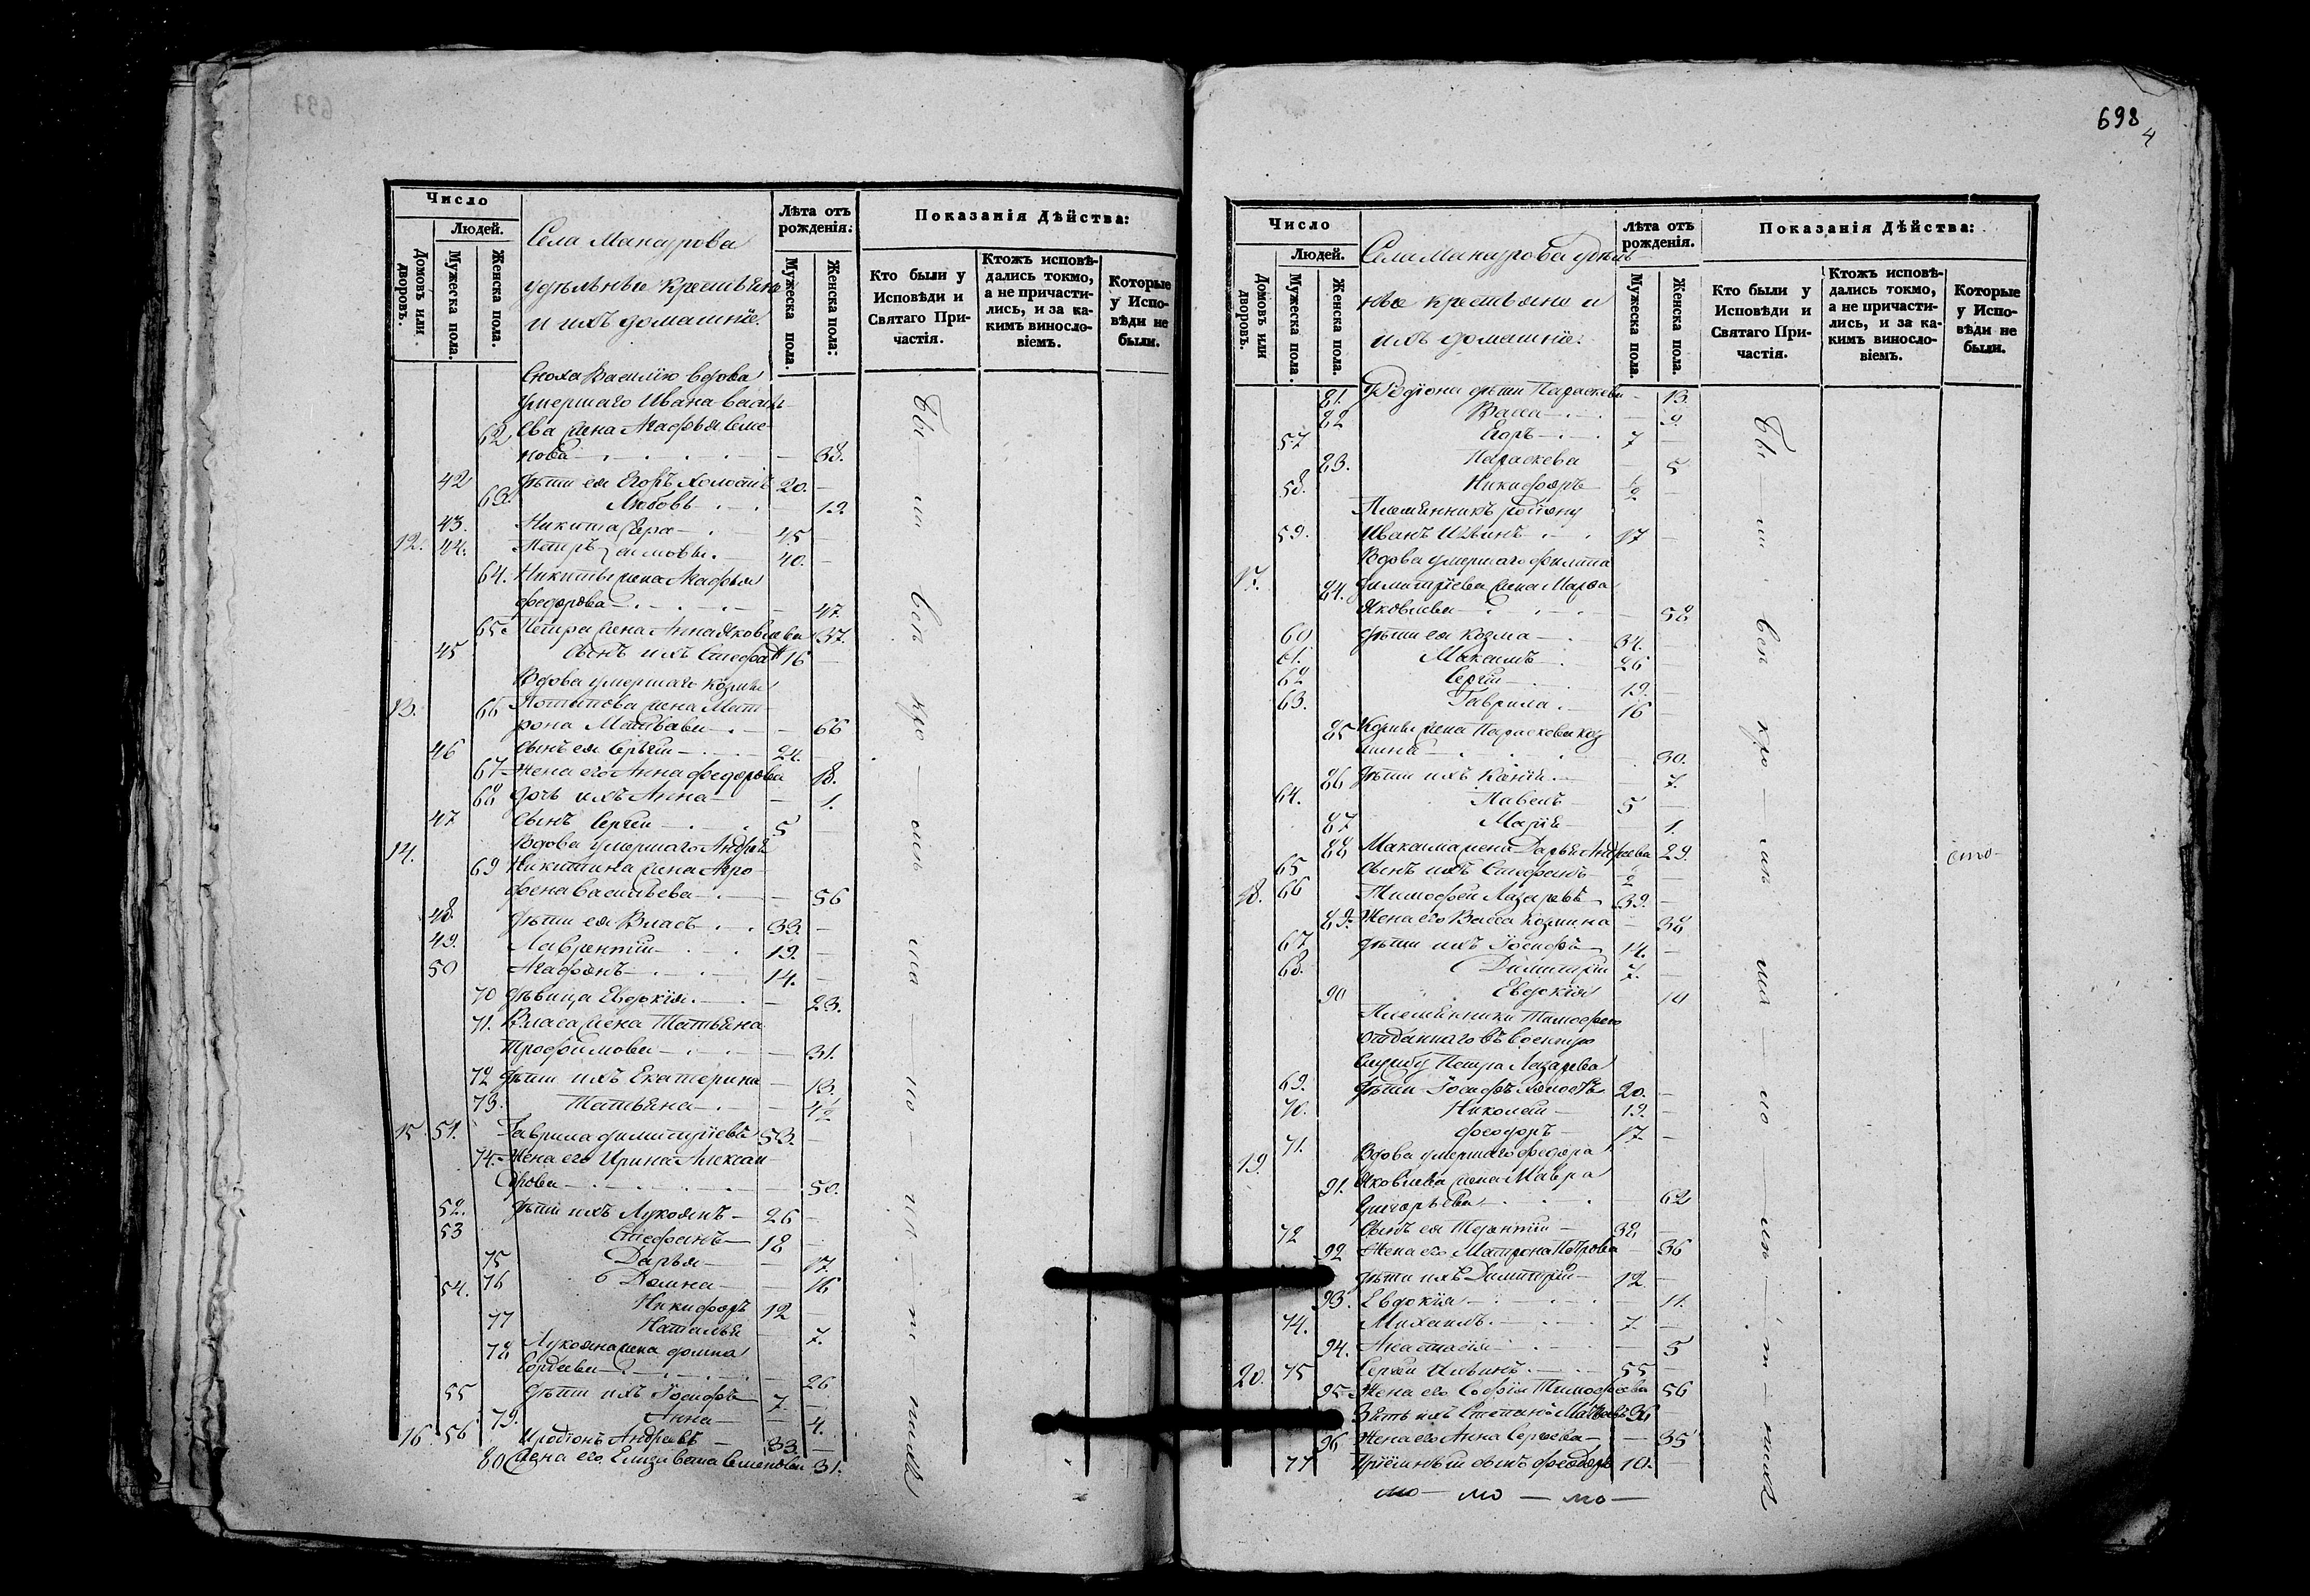 Число
Людей.
Домовъ или дворовъ.
Мужеска пола.
Женска пола.
Села Мансурова
удѣльные крестьяне
и ихъ домашніе.
Лѣта отъ рожденія:
Мужеска пола.
Женска пола:
Показанія Дѣйства:
Кто были у Исповѣди и Святаго Причастія.
Ктожъ исповѣдались токмо, а не причастились, и за какимъ винословіемъ.
Которые у Исповѣди не были.
Сноха Василію вдова
умершаго Ивана Василь-
62 ева жена Агафья Семе-
нова 38.
42 Дѣти ея Егоръ холостъ 20.
63. Любовь 12.
43. Никита 45
12. 44. Петръ 40.
64. Никиты жена Агафья
Федорова 47.
65. Петра жена Анна Яковлева 37.
45 Сынъ ихъ Стефанъ 16
Вдова умершаго Козмы
13. 66 жена Мат-
рона Матвѣева 66
46 Сынъ ея Сергѣй 24.
67 Жена его Анна Федорова 18.
68 Дочь ихъ Анна 1.
47 Сынъ Сергѣй 5
14. Вдова умершаго Андрея
69 Никитина жена Агро-
фена Васильева 56
48. Дѣти ея Власъ 33.
49. Лаврентій 19.
50 Агафонъ 14.
70 Дѣвица Евдокія 23.
71. Власа жена Татьяна
Трофимова 31.
72 Дѣти ихъ Екатерина 13.
73. Татьяна 1/2
15. 51. Гаврила Димитріевъ 53.
74. Жена его Ирина Алексан-
дрова 50.
52. Дѣти ихъ Лукоянъ 26
53 Стефанъ 18
75 Дарья 17.
76 Домна 16
54. Никифоръ 12
77 Наталья 7.
78 Лукояна жена Домна
Гордѣева 26
55 Дѣти ихъ Іосифъ 7.
79. Анна 4.
16. 56 Иродіонъ Андреевъ 33.
80 Жена его Елизавета Семенова 31.
бы — ли — всѣ
698
4
Число
Людей.
Домовъ или дворовъ.
Мужеска пола.
Женска пола.
Села Мансурова удѣль-
ные крестьяне и
ихъ домашніе:
Лѣта отъ рожденія.
Мужеска пола.
Женска пола.
Показанія Дѣйства:
Кто были у Исповѣди и Святаго Причастія.
Ктожъ исповѣдались токмо, а не причастились, и за какимъ винословіемъ.
Которые у Исповѣди не были.
81. Родіона дѣти Параскева 13.
82 Васса 9.
57 Егоръ 7
83. Параскева 5
58. Никифоръ 1/2
Племянникъ Родіону
59. Иванъ Ильинъ 17
Вдова умершаго Филипа
17. 84. Димитріева жена Марфа
Яковлева 58
60 Дѣти ея Козма 34.
61. Максимъ 26
62 Сергѣй 19.
63. Гаврила 16
85 Козмы жена Параскева Коз-
мина 30.
86 Дѣти ихъ 7.
64. Павелъ 5
87 Марія 1.
88 Максима жена Дарья Андреева 29.
65 Сынъ ихъ Стефанъ 1/2
18. 66 Тимофей Лазаревъ 39.
89. Жена его Васса Козмина 38
67 Дѣти ихъ Іосифъ 14.
68. Димитрій 7.
90 Евдокія 10
Племянники Тимофею
отданнаго въ военную
службу Петра Лазарева
69. Дѣти Іосифъ холостъ 20.
70. Николай 19.
71. Феодоръ 17.
19. Вдова умершаго Федора
91. Яковлева жена Мавра
Григорьева 62
72 Сынъ ея Терентій 38
92 Жена его Матрона Петрова 36
Дѣти ихъ Димитрій 12
93. Евдокія 11.
74. Михаилъ 7.
94. Анастасія 5
20. 75 Сергѣй Ильинъ 55
95 Жена его Софія Тимофеева 56
Зять ихъ Степанъ Матвѣевъ 36
96 Жена его Анна Сергѣева 35
77 Пріемный сынъ Феодоръ 10.
бы — ли — всѣ